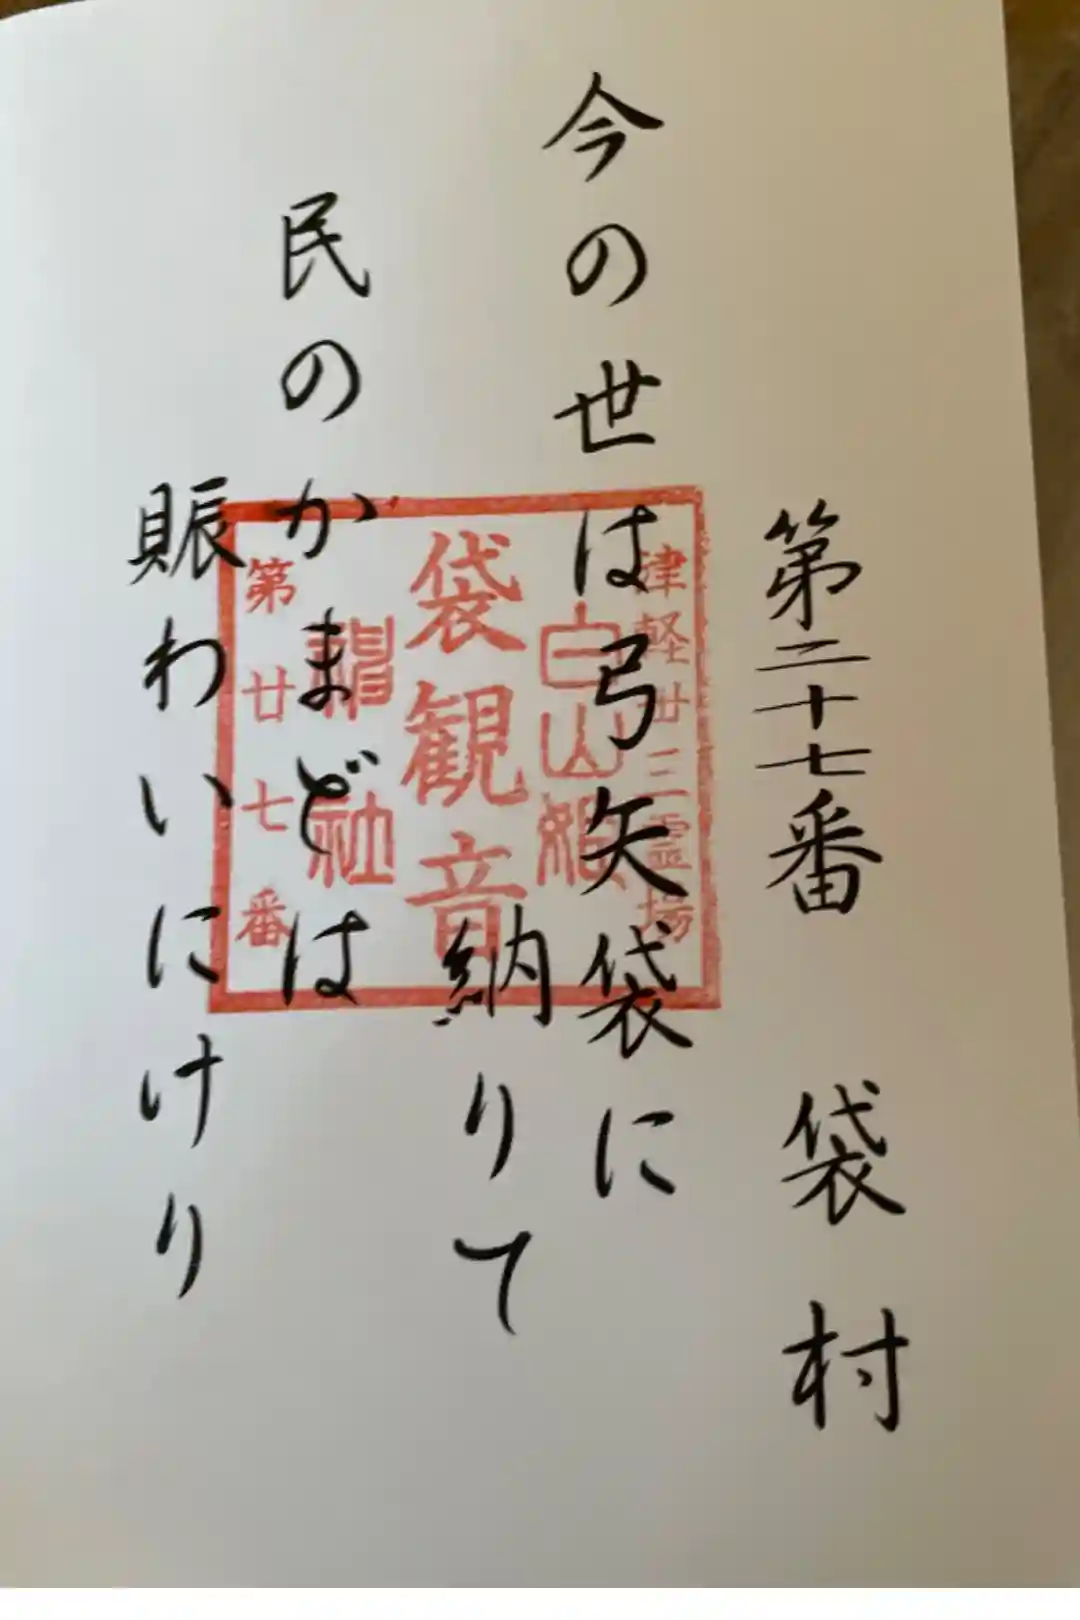 第二十七番 袋村
今の世は弓矢袋に
納りて
民のかまどは
賑わいにけり
津軽卅三霊場
白山姫
袋観音
神社
第廿七番